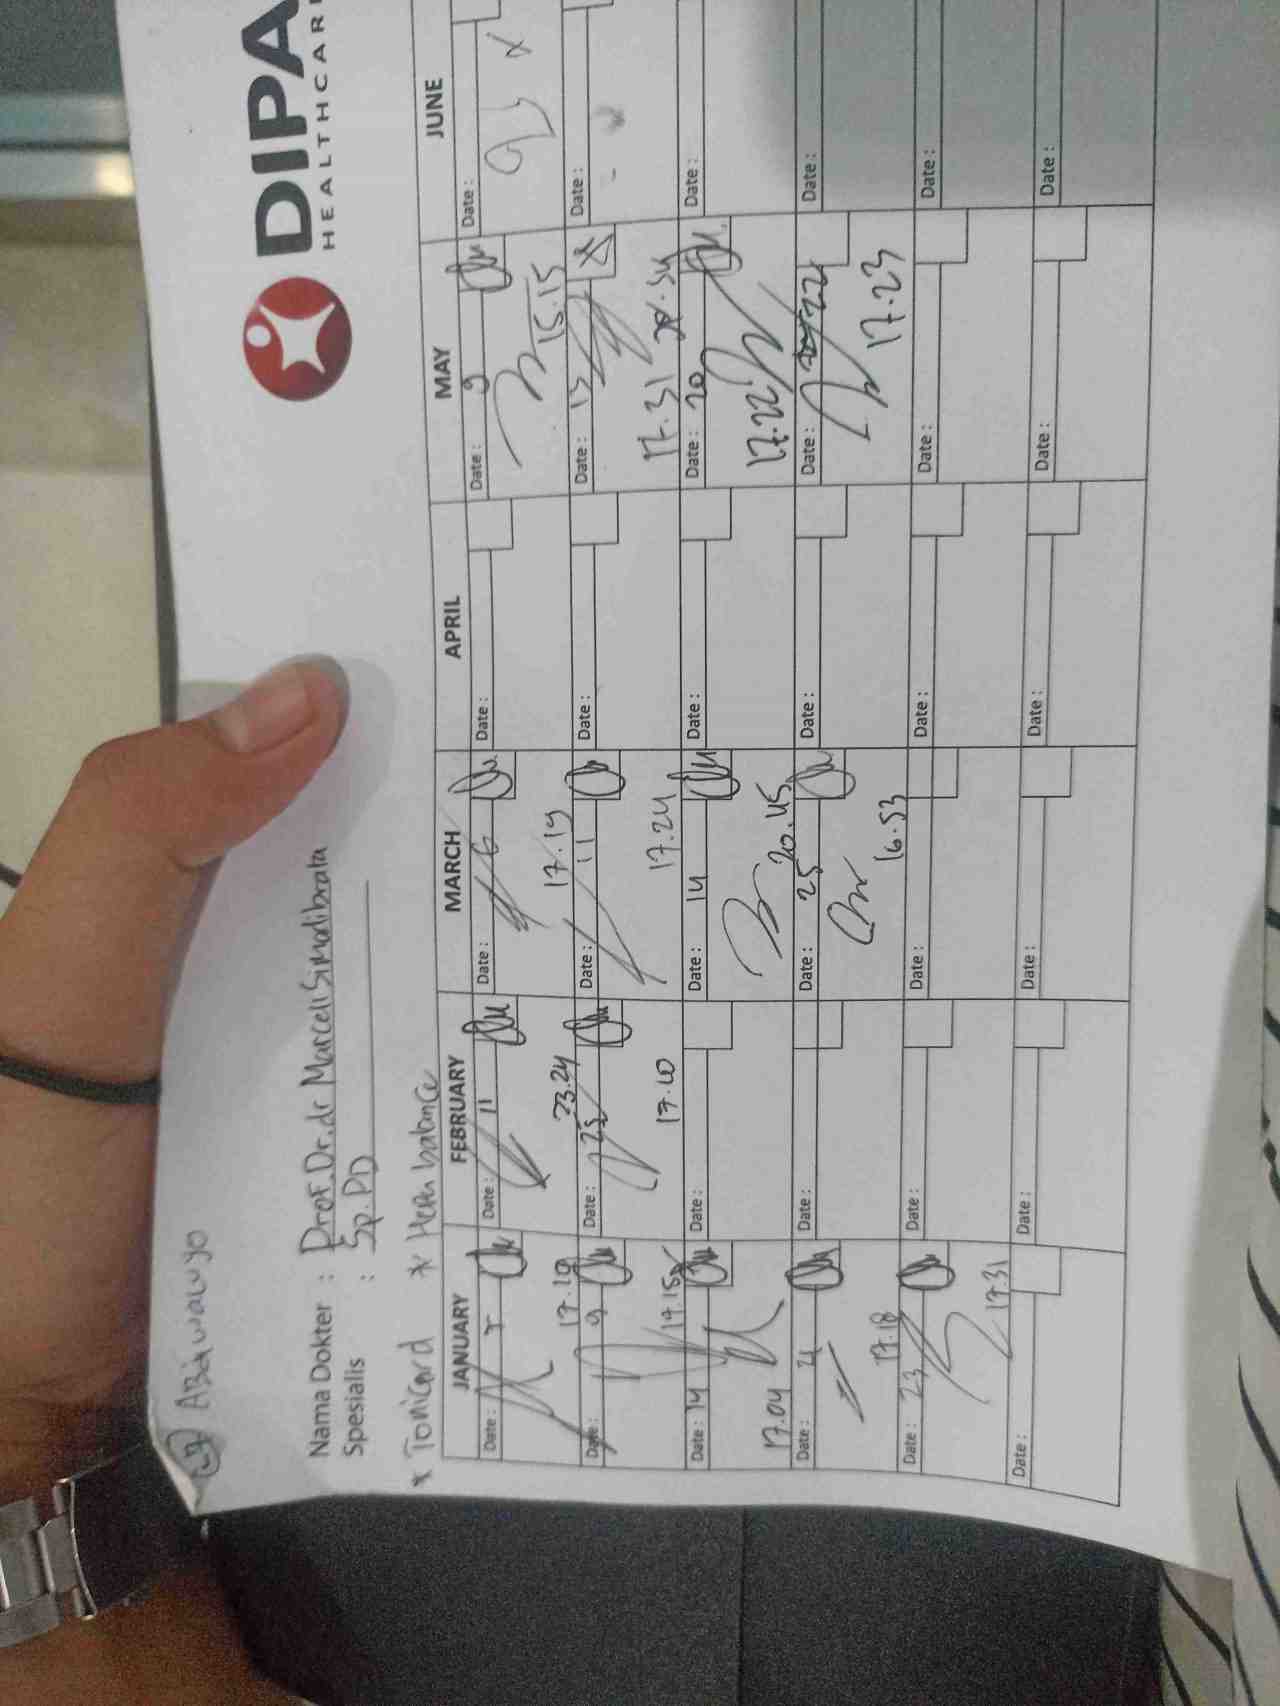 27 Abdiwaluyo
DIPA
HEALTHCAR
Nama Dokter : Prof. Dr. dr Marcell Simadibrata
Spesialis : Sp. PD
* Tonicard * Heph balance
JANUARY FEBRUARY MARCH APRIL MAY JUNE
Date : Date : 11 Date : 6 Date : Date : 9 Date :
17.19 23.24 17.19 15.15
Date : 9 Date : 25 Date : 11 Date : Date : 13 Date :
17.15 17.10 17.24 17.31
Date : 14 Date : Date : 14 Date : Date : 20 Date :
17.04 20.45 17.22
Date : 21 Date : Date : 25 Date : Date : 22 Date :
17.18 16.53 17.23
Date : 23 Date : Date : Date : Date : Date :
17.31
Date : Date : Date : Date : Date : Date :